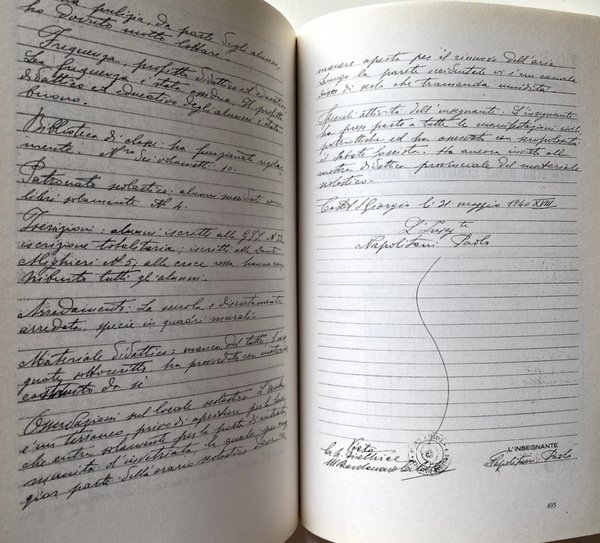 pulizia, da parte degli alunni,
ha dovuto molto lottare.
Frequenza, profitto didattico ed educativo
La frequenza è stata
didattico ed educativo degli alunni è stato
buono.
Biblioteca di classe: ha funzionato regolar
mente. N° dei volumetti 10.
Patronato scolastico: alunni
libri solamente N. 4.
Iscrizioni: alunni iscritti alla G.I.L. N.
iscrizione totalitaria; iscritti alla Dante
Alighieri N. 5; alla croce rossa hanno con
tribuito tutti gli alunni.
Arredamento: La scuola è discretamente
arredata, specie in quadri murali.
Materiale didattico: manca del tutto,
sottoscritto ha provveduto con materiale
costruito da sé
Osservazioni sul locale scolastico.
è un terraneo, privo di aperture per la luce
che entra solamente per la porta d'entrata
munita d'invetriata, la quale per
gior parte dell'orario scolastico deve ri
manere aperta per il rinnovo dell'aria.
Lungo la parete occidentale vi è un canale
di scolo che tramanda umidità.
Speciali attività dell'insegnante: L'insegnante
ha preso parte a tutte le manifestazioni civili
patriottiche, ed ha
il sabato fascista. Ha ancora inviato alla
mostra didattica provinciale del materiale
scolastico.
Castel S. Giorgio li 21 maggio 1940 XVIII
L'Insegte
Napolitani Paolo
Visto
La Direttrice
L'INSEGNANTE
Napolitani Paolo
493